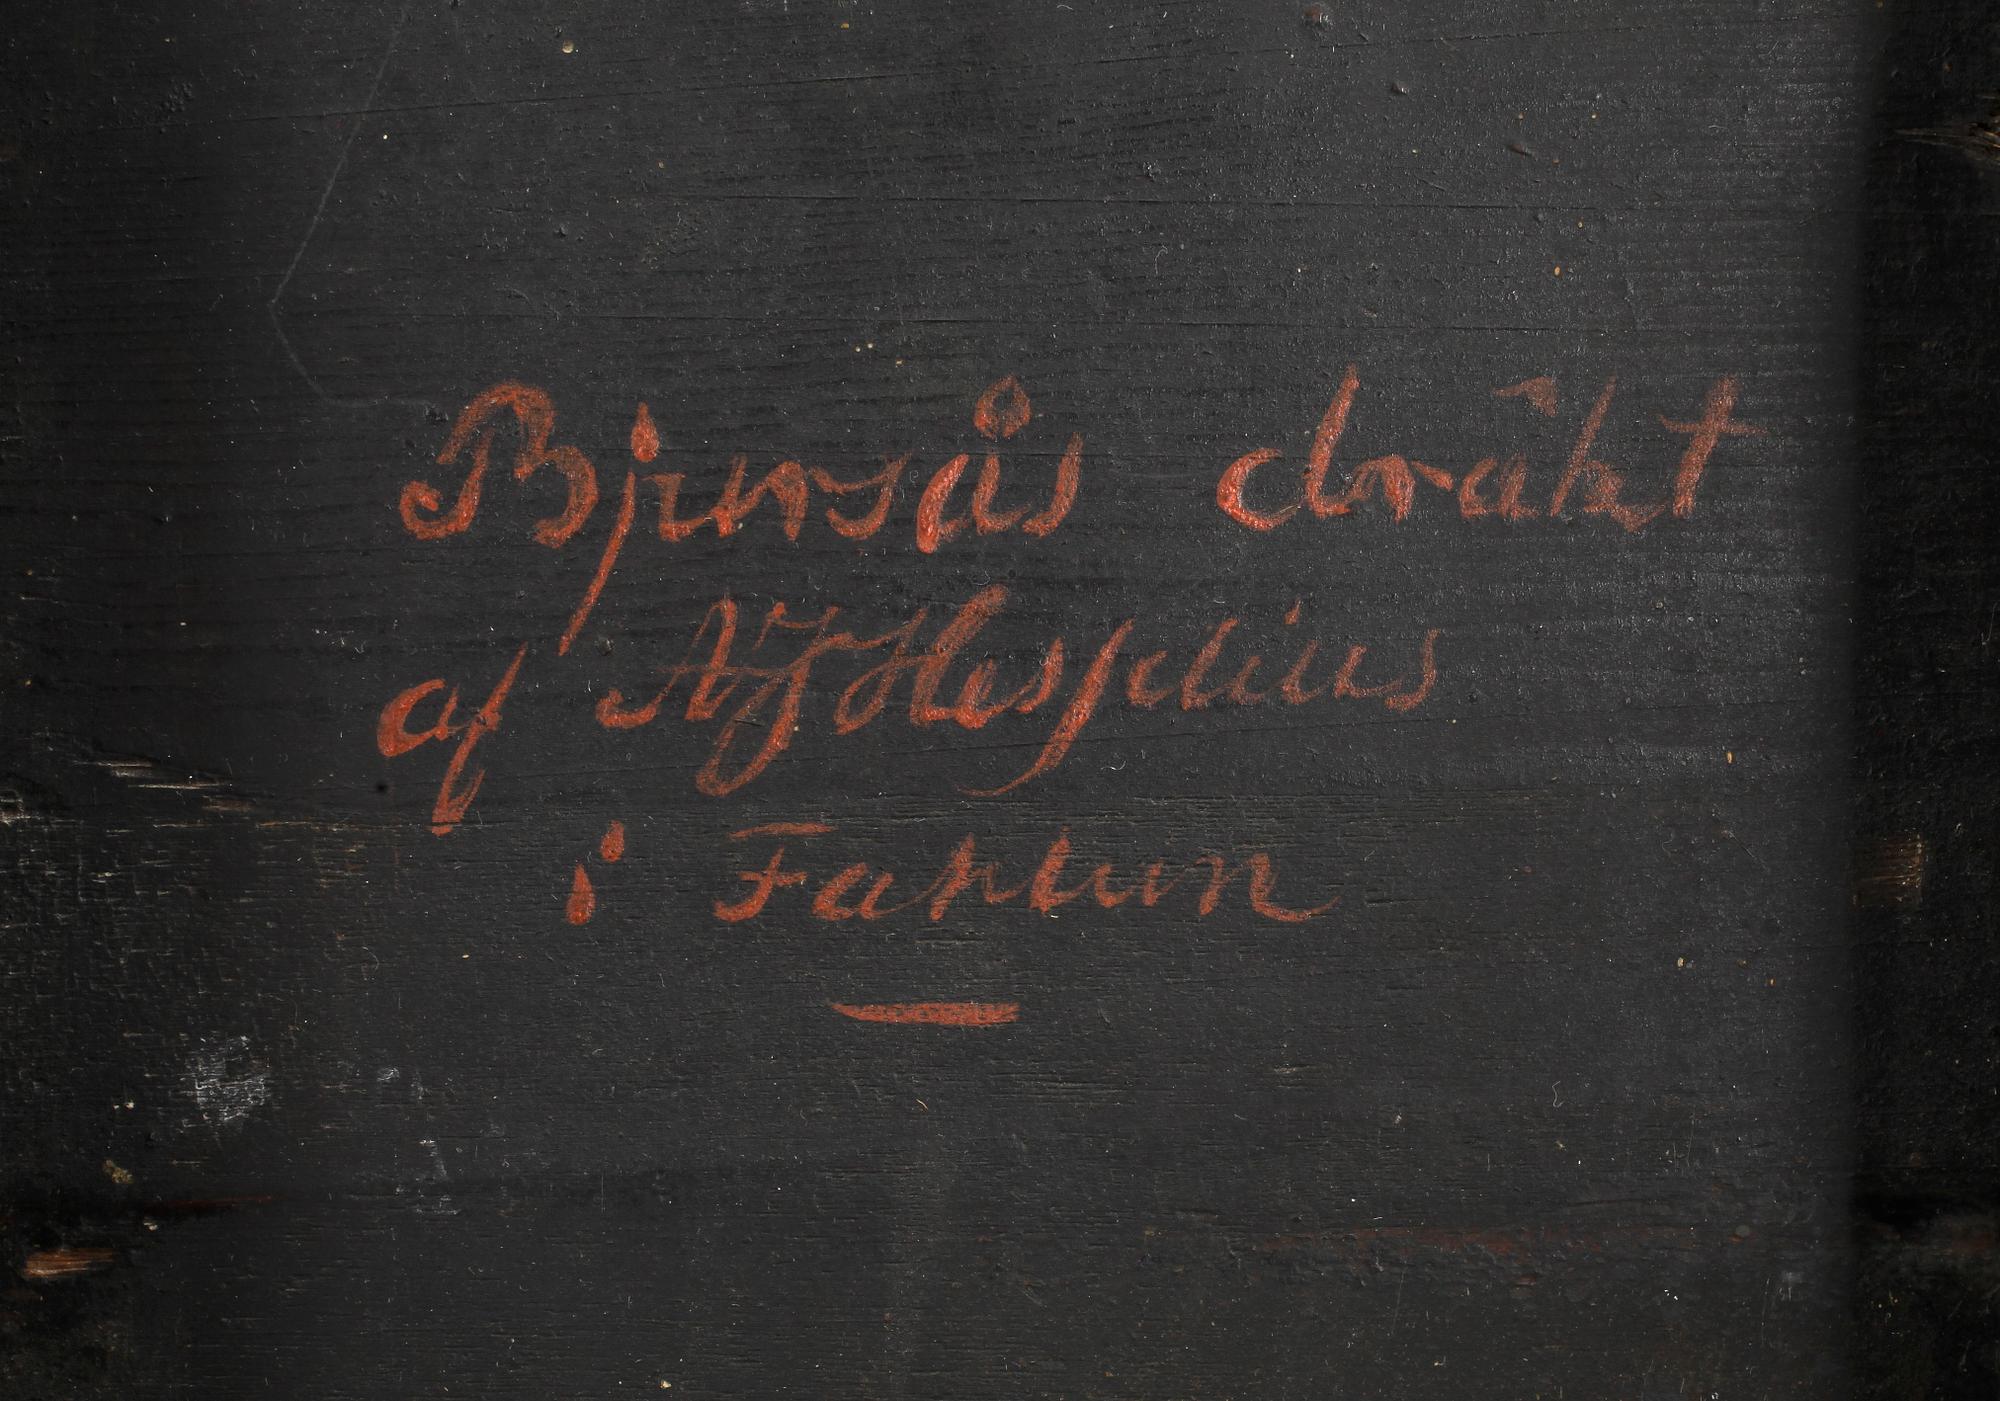 Bjursås dräkt
af Hesselius
i Fahlun